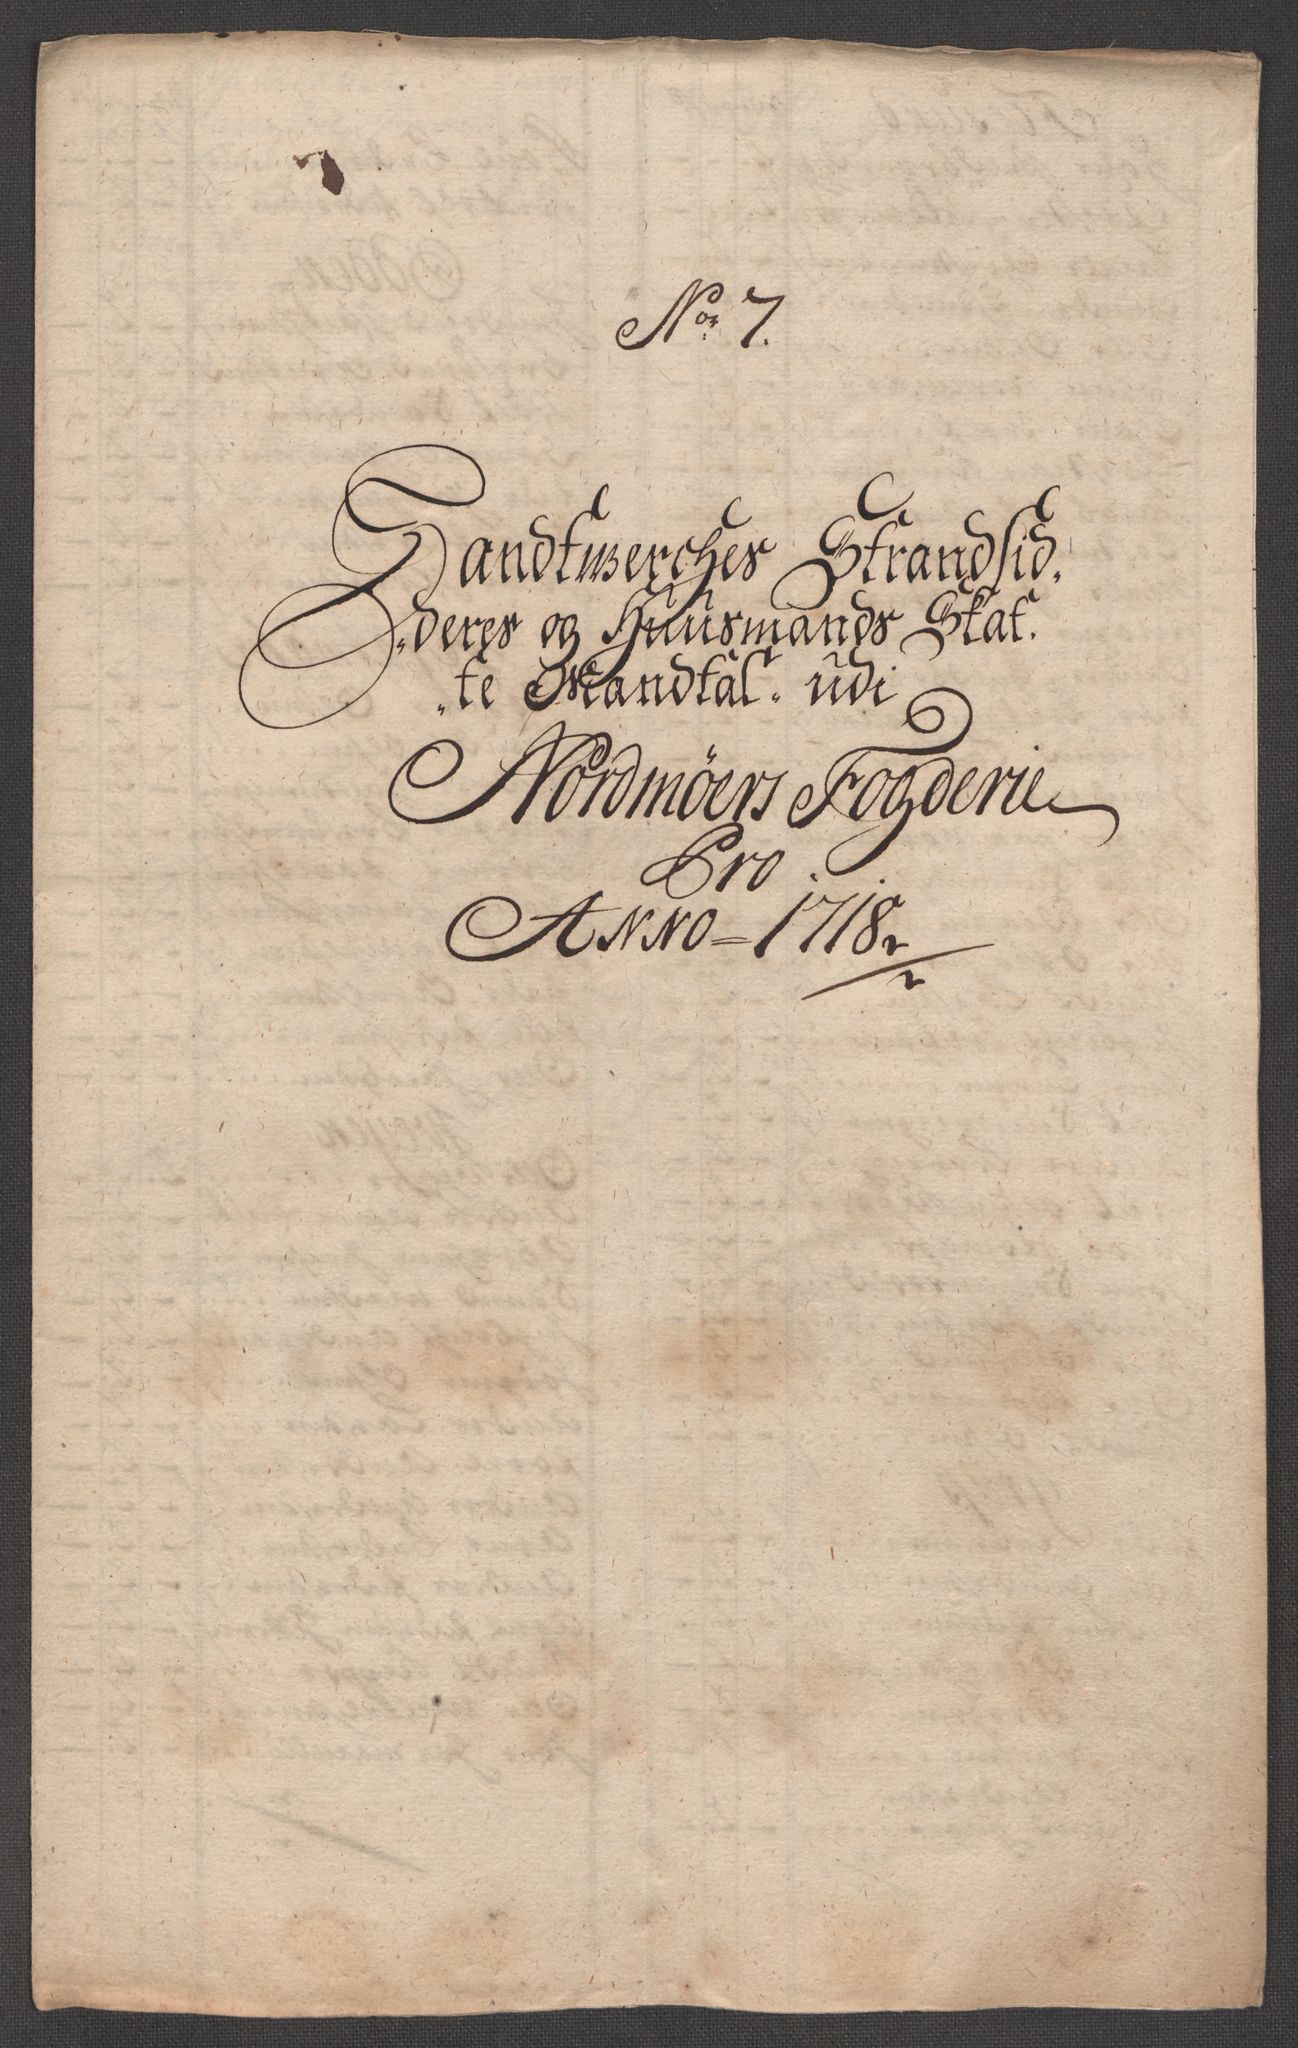 No: 7.
Handtwerches Strandsid.
„deres og Huusmands Skat.
„te Mandtal. udi
Nordmöers Fogderie
Pro
ANNO = 1718